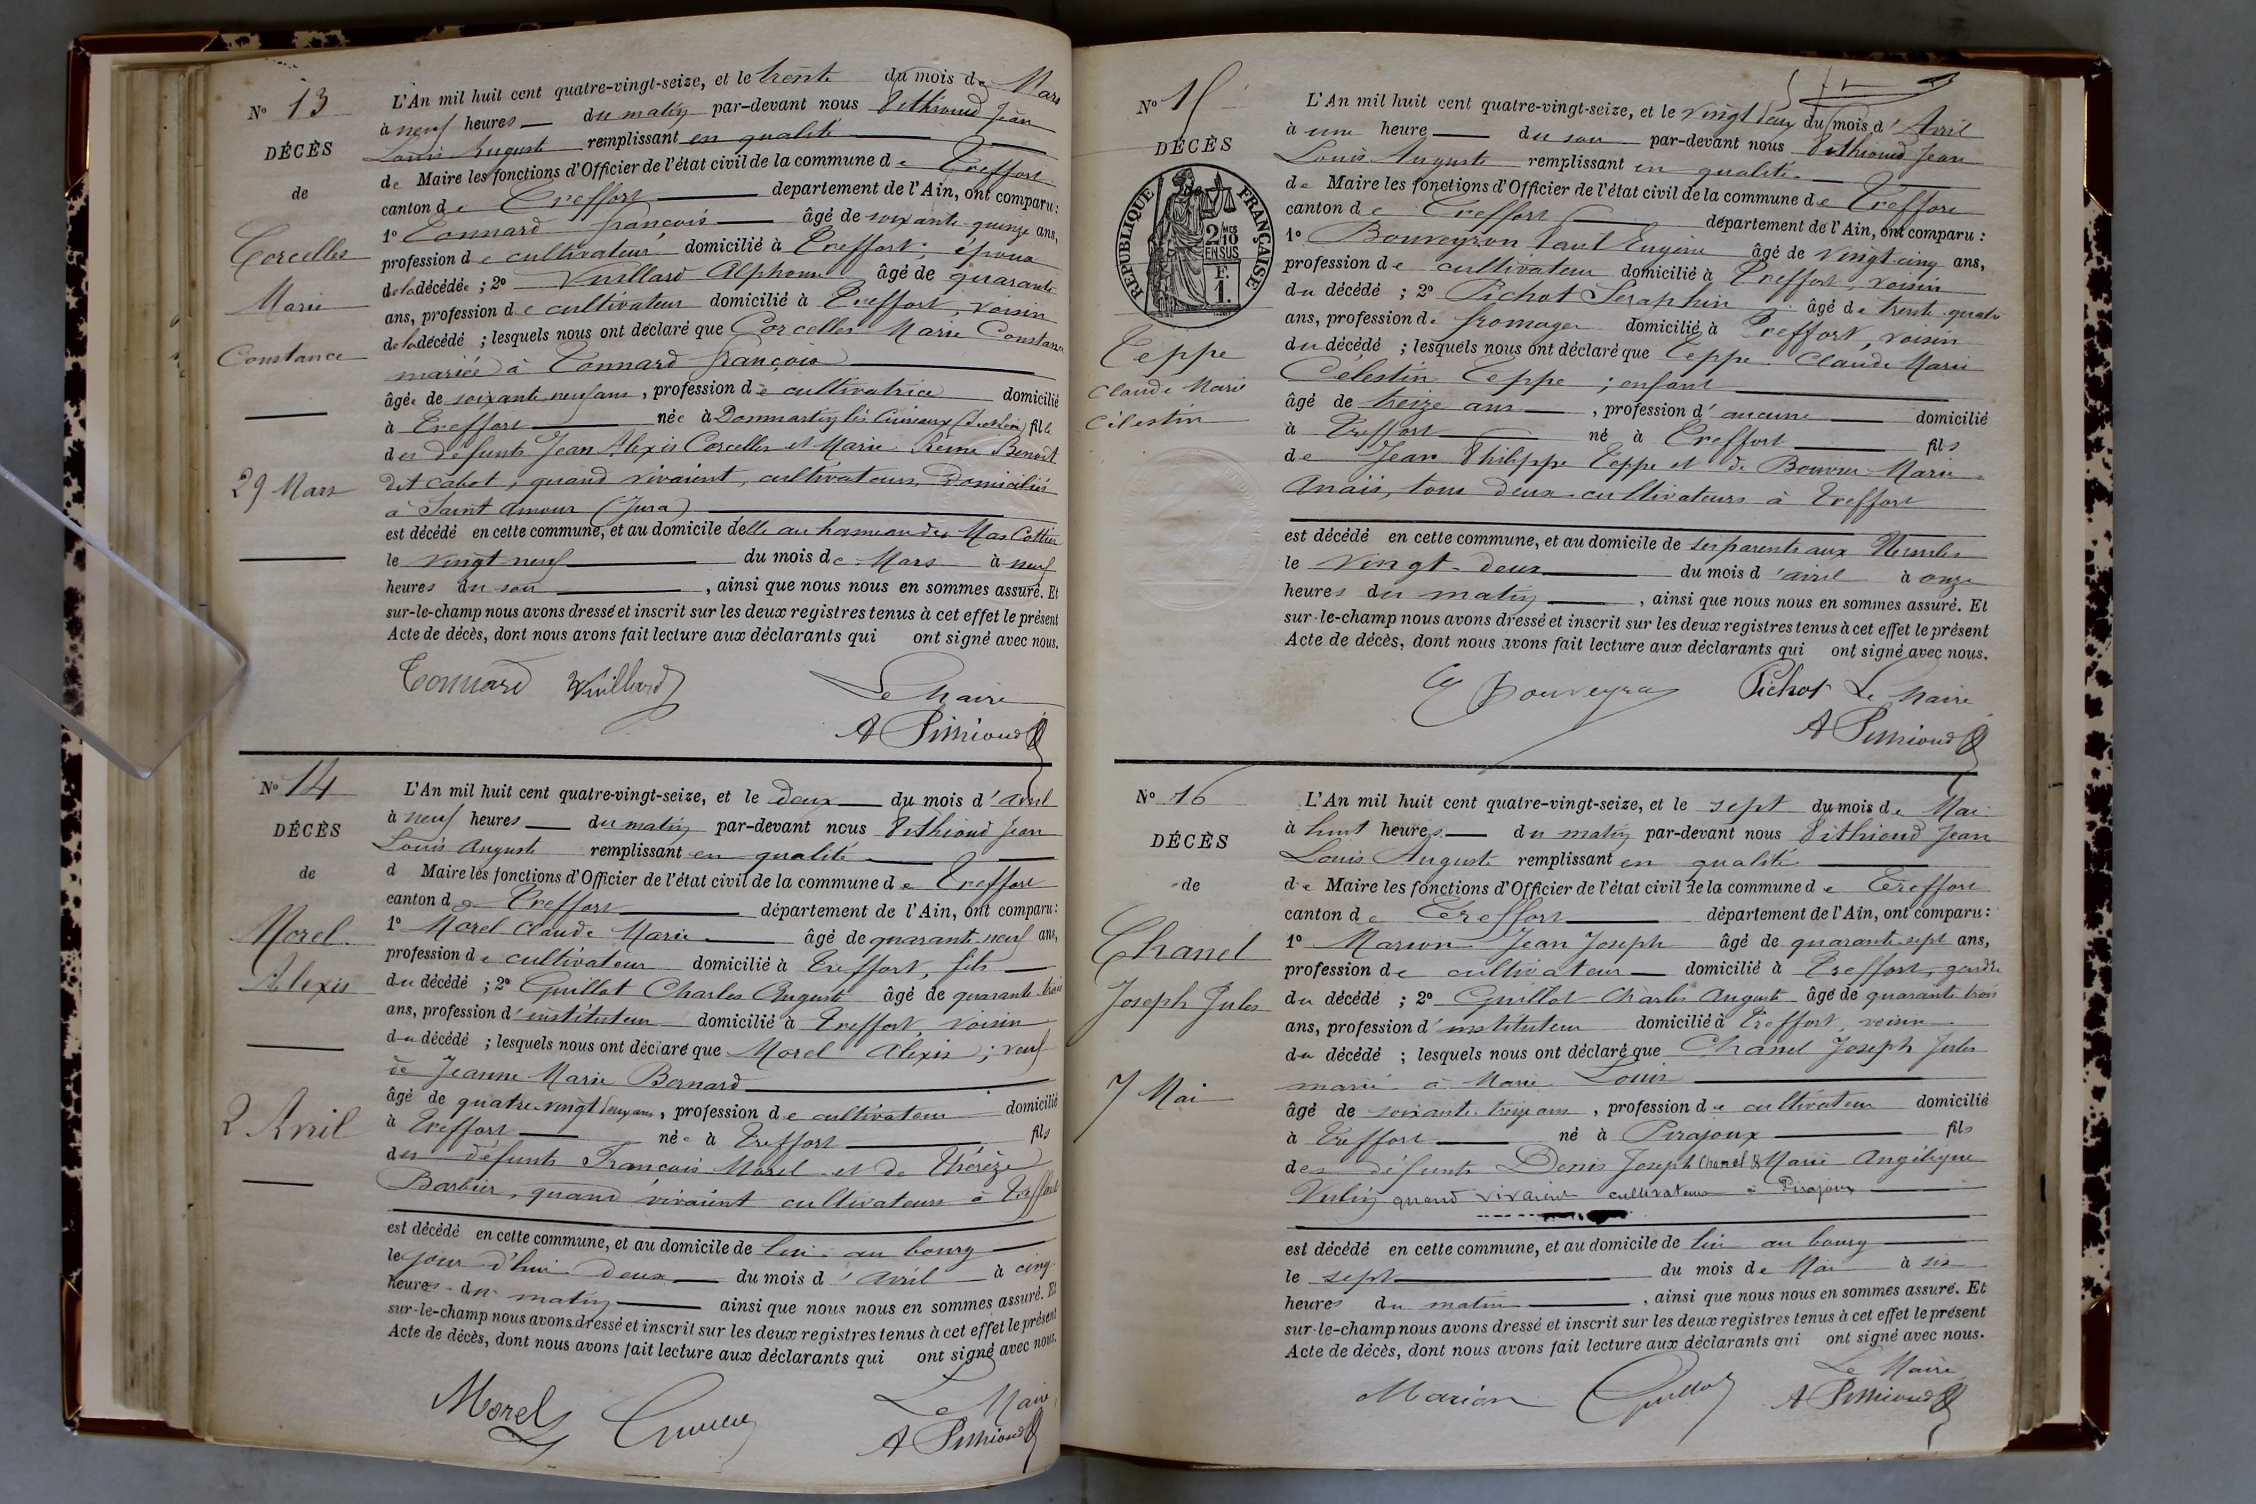 N° 13
DÉCÈS
de
Corcelles
Marie
Constance
29 Mars
L'An mil huit cent quatre-vingt-seize, et le trente du mois de Mars
à neuf heures du matin par-devant nous Pithioud Jean
Louis Auguste remplissant en qualité
de Maire les fonctions d'Officier de l'état civil de la commune de Treffort
canton de Treffort departement de l'Ain, ont comparu :
1° Connard François âgé de soixante-quinze ans,
profession de cultivateur domicilié à Treffort, époux
de la décédée ; 2° Vuillard Alphonse âgé de quarante
ans, profession de cultivateur domicilié à Treffort, voisin
de la décédé ; lesquels nous ont déclaré que Corcelles Marie Constance
mariée à Connard François
âgée de soixante neuf ans, profession de cultivatrice domicilié
à Treffort née à Dommartin les Cuiseaux fille
des défunts Jean Alexis Corcelles et Marie Reine Benoit
dit Cabot, quand vivaient, cultivateurs, domiciliés
à Saint Amour (Jura)
est décédé en cette commune, et au domicile d'elle au hameau des Mas Cottier
le vingt neuf du mois de Mars à neuf
heures du soir, ainsi que nous nous en sommes assuré. Et
sur-le-champ nous avons dressé et inscrit sur les deux registres tenus à cet effet le présent
Acte de décès, dont nous avons fait lecture aux déclarants qui ont signé avec nous.
Connard Vuillard Le Maire
A Pithioud
N° 14
DÉCÈS
de
Morel
Alexis
2 Avril
L'An mil huit cent quatre-vingt-seize, et le deux du mois d'avril
à neuf heures du matin par-devant nous Pithioud Jean
Louis Auguste remplissant en qualité
d Maire les fonctions d'Officier de l'état civil de la commune de Treffort
canton de Treffort département de l'Ain, ont comparu :
1° Morel Claude Marie âgé de quarante-neuf ans,
profession de cultivateur domicilié à Treffort, fils
du décédé ; 2° Guillot Charles Auguste âgé de quarante-trois
ans, profession d'instituteur domicilié à Treffort, voisin
du décédé ; lesquels nous ont déclaré que Morel Alexis ; veuf
de Jeanne Marie Bernard
âgé de quatre-vingt deux ans, profession de cultivateur domicilié
à Treffort né à Treffort fils
des défunts François Morel et de Thérèze
Barbier, quand vivaient cultivateurs à Treffort
est décédé en cette commune, et au domicile de lui au bourg
le jour d'hui deux du mois d'avril à cinq
heures du matin ainsi que nous nous en sommes assuré. Et
sur-le-champ nous avons dressé et inscrit sur les deux registres tenus à cet effet le présent
Acte de décès, dont nous avons fait lecture aux déclarants qui ont signé avec nous.
Morel Guillot Le Maire
A Pithioud
N° 15
DÉCÈS
RÉPUBLIQUE FRANÇAISE
2/10 MES EN SUS
1 F.
Teppe
Claude Marie
Célestin
L'An mil huit cent quatre-vingt-seize, et le vingt deux du mois d'Avril
à une heure du soir par-devant nous Pithioud Jean
Louis Auguste remplissant en qualité
de Maire les fonctions d'Officier de l'état civil de la commune de Treffort
canton de Treffort département de l'Ain, ont comparu :
1° Bouveyron Paul Eugène âgé de vingt-cinq ans,
profession de cultivateur domicilié à Treffort, voisin
du décédé ; 2° Pichot Séraphin âgé de trente-quatre
ans, profession de fromager domicilié à Treffort, voisin
du décédé ; lesquels nous ont déclaré que Teppe Claude Marie
Célestin Teppe ; enfant
âgé de treize ans, profession d'aucune domicilié
à Treffort né à Treffort fils
de Jean Philippe Teppe et de Bouvier Marie
Anaïs, tous deux cultivateurs à Treffort
est décédé en cette commune, et au domicile de ses parents aux
le vingt-deux du mois d'avril à onze
heures du matin, ainsi que nous nous en sommes assuré. Et
sur-le-champ nous avons dressé et inscrit sur les deux registres tenus à cet effet le présent
Acte de décès, dont nous avons fait lecture aux déclarants qui ont signé avec nous.
Bouveyron Pichot Le Maire
A Pithioud
N° 16
DÉCÈS
de
Chanel
Joseph Jules
7 Mai
L'An mil huit cent quatre-vingt-seize, et le sept du mois de Mai
à huit heures du matin par-devant nous Pithioud Jean
Louis Auguste remplissant en qualité
de Maire les fonctions d'Officier de l'état civil de la commune de Treffort
canton de Treffort département de l'Ain, ont comparu :
1° Marion Jean Joseph âgé de quarante-sept ans,
profession de cultivateur domicilié à Treffort, gendre
du décédé ; 2° Guillot Charles Auguste âgé de quarante-trois
ans, profession d'instituteur domicilié à Treffort, voisin
du décédé ; lesquels nous ont déclaré que Chanel Joseph Jules
marié à Marie Louis
âgé de soixante-treize ans, profession de cultivateur domicilié
à Treffort né à Pirajoux fils
des défunts Denis Joseph Chanel & Marie Angélique
quand vivaient cultivateurs à Pirajoux
est décédé en cette commune, et au domicile de lui au bourg
le sept du mois de Mai à six
heures du matin, ainsi que nous nous en sommes assuré. Et
sur-le-champ nous avons dressé et inscrit sur les deux registres tenus à cet effet le présent
Acte de décès, dont nous avons fait lecture aux déclarants qui ont signé avec nous.
Marion Guillot Le Maire
A Pithioud